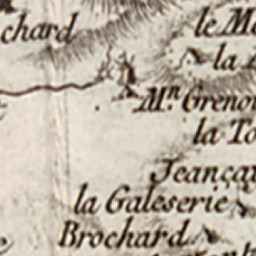 chard
le M
la
M.n Greno
la To
Jeança
la Galeserie
Brochard